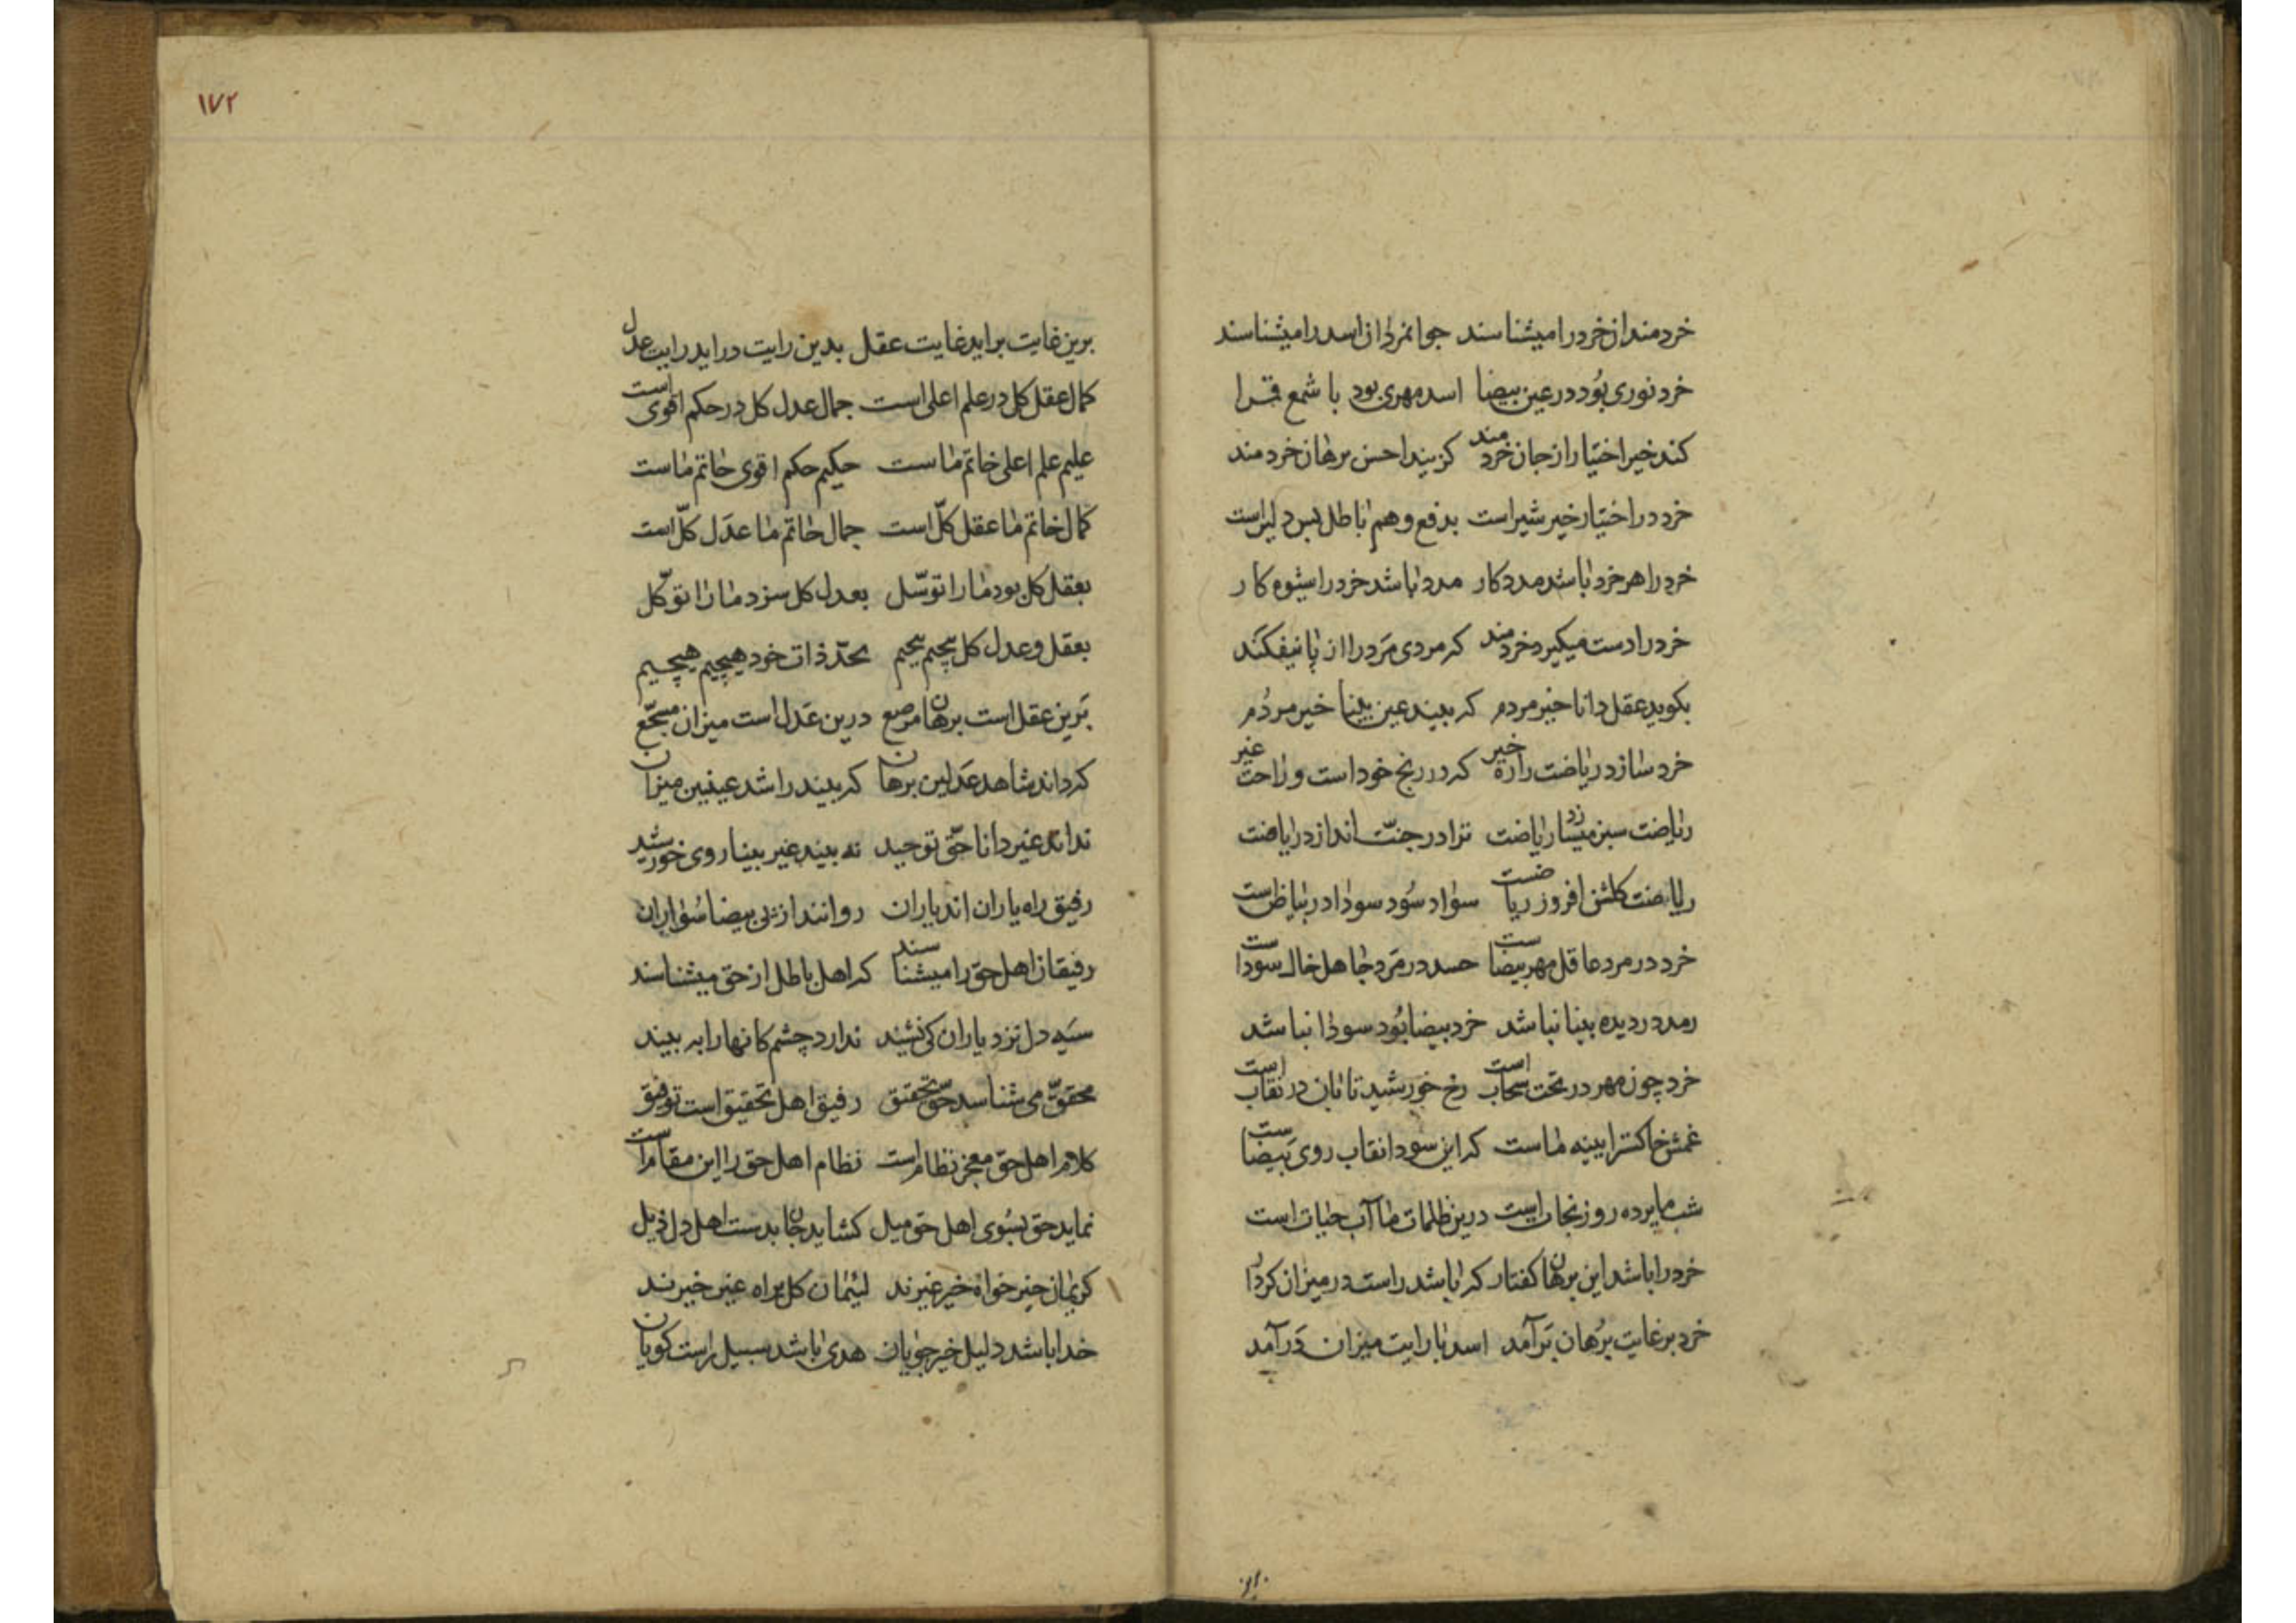 خردمندان خرد را میشناسند جوانمردان اسد را میشناسند
خرد نوری بُود در عین بیضا اسد مهری بود با شمع قرا
کند خیر اختیار از جان خردمند کزیند احسن برهان خردمند
خرد در اختیار خیر شیر است بدفع وهم باطل بس دلیر است
خرد را هر خرد باشد مددکار مدد باشد خرد را شیوه کار
خرد را دست میکیرد خردمند که مردی مَرد را از پا نیفکند
بکوید عقل دانا خیر مردم که بیند عین بینا خیر مردُم
خرد سازد ریاضت را ره خیر که در رنج خود است و راحت غیر
ریاضت سبز میسازد ریاضت ترا در جنّت اندازد ریاضت
ریاضت کلشن افروز ریاضست سواد سُود سودا در بیاض است
خرد در مرد عاقل مهر بیضاست حسد در مَرد جاهل خال سوداست
رمد در دیده بینا نباشد خرد بیضا بُود سودا نباشد
خرد چون مهر در تحت سحاب است رخ خورشید تابان در نقاب است
غمش خاکستر ایینه ماست که این سودا نقاب روی بَیضاست
شب ما پرده روز نجات است درین ظلمات ما آب حیات است
خرد را باشد این برهان کفتار که باشد راست در میزان کردار
خرد بر غایت بُرهان بَرآمد اسد با رایت میزان دَرآمد
برین
۱۷۲
برین غایت براید غایت عقل بدین رایت دراید رایت عدل
کمال عقل کل در علم اعلی است جمال عدل کل در حکم اقوی است
علیم علم اعلی خاتم ماست حکیم حکم اقوی خاتم ماست
کمال خاتم ما عقل کلّ است جمال خاتم ما عدَل کلّ است
بعقل کل بود ما را توسّل بعدل کل سزد ما را توکّل
بعقل و عدل کل پیچیم پیچیم بحدّ ذات خود هیچیم هیچیم
بَرین عقل است برهان مرصع درین عَدل است میزان مسجّع
که داند شاهد عَدل این برهان که بیند راشد عینین میزان
نداند غیر دانا حقّ توحید نه بیند غیر بینا روی خورشید
رفیق راه یاران اند یاران روانند از پی بیضا سُواران
رفیقان اهل حق را میشناسند که اهل باطل از حق میشناسند
سیَه دل نزد یاران کی نشیند ندارد چشم کانها را به بیند
محققّ می شناسد حق تحقیق رفیق اهل تحقیق است توفیق
کلام اهل حق معجز نظام است نظام اهل حق را این مقام است
نماید حق بسُوی اهل حق میل کشاید جان بدست اهل دل ذیل
کریمان خیر خواه خیر غیرند لئیمان کل براه عین خیرند
خدا باشد دلیل خیر جویان هدی باشد سبیل راست کویان